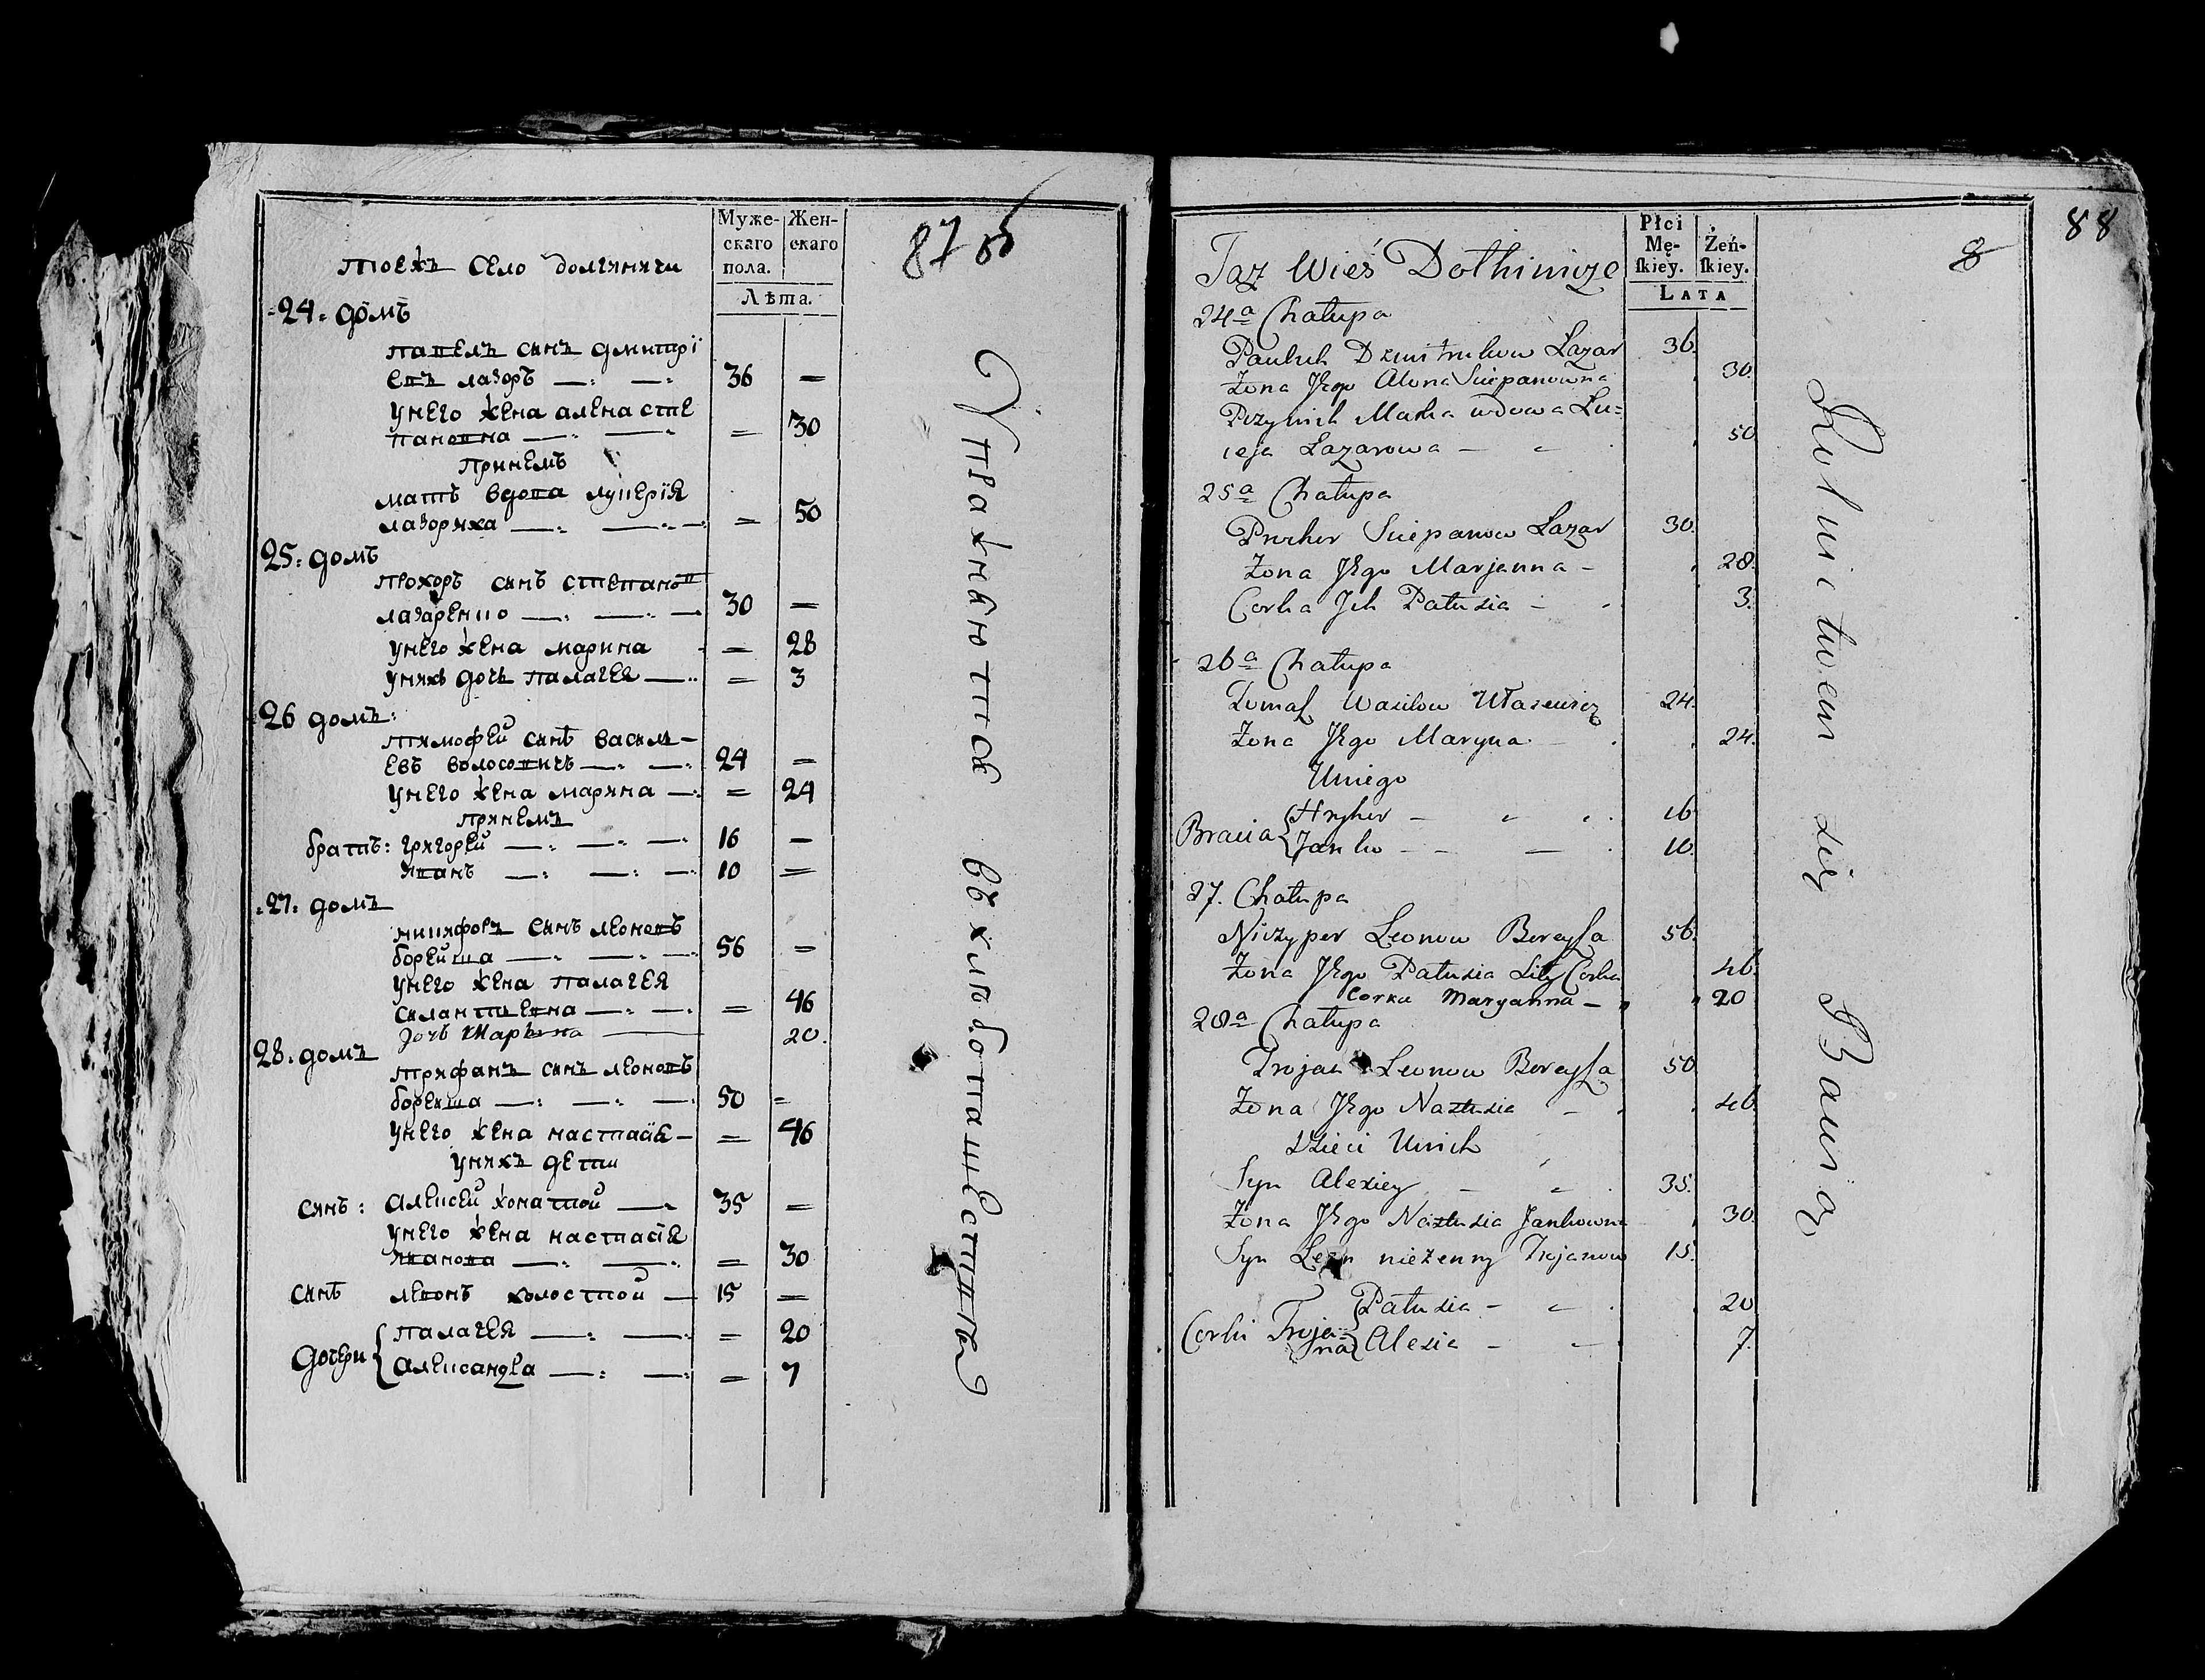 Муже-
скаго
пола.
Жен-
скаго
Лѣта.
87 об
тоежъ село долгиничи
24. домъ
павелъ синъ дмитрї
евъ лазоръ 36 —
унего жена алена сте
пановна — 30
принемъ
мать вдова лукерїя
лазориха — 50
25. домъ
прохоръ синъ степанов
лазаренко 30 —
унего жена марина — 28
унихъ дочь палагея — 3
26 домъ:
тимофей синъ васил-
евъ волосовичъ 24 —
унего жена марина — 24
принемъ
братъ: григорей 16 —
иванъ 10 —
27. домъ
никифоръ синъ леоновъ
борейша 56 —
унего жена палагея
силантьевна — 46
дочь Марьяна 20.
28. домъ
трифанъ синъ леоновъ
борейша 50 =
унего жена настасїя — 46
унихъ дети
синъ: алексей женатой 35 —
унего жена настасїя
ивановна — 30
синъ левонъ холостой 15 —
дочери палагея — 20
александра — 7
Упражняются въ хлебопашестве
88
8
Płci
Mę-
skiey.
Żeń-
skiey.
LATA
Taz Wieś Dołhinicze
24a Chałupa
Pauluk Dzmitrukow Lazar 36.
Żona Jego Alona Sciepanowna 30.
Przynich Matka wdowa Lu=
ceja Lazarowa 50
25a Chałupa
Prucher Sciepanow Lazar 30.
Żona Jego Marjanna 28.
Corka Ich Patusia 3.
26a Chałupa
Tomasz Wasilow Własewicz 24.
Żona Jego Maryna 24.
Uniego
Bracia Hryher 16
Janko 10.
27. Chałupa
Niczyper Leonow Bereysza 56.
Żona Jego Patusia Sily Corka 46.
Corka Maryanna 20
28a Chałupa
Trojan Leonow Bereysza 50
Żona Jego Nastusia 46.
Dzieci Unich
Syn Alexiey 35.
Żona Jego Nastusia Jankowna 30.
Syn Leon nieżenny Trojanow 15.
Corki Troja=
na Patusia 20
Alesia 7.
Rolnictwem się Bawią